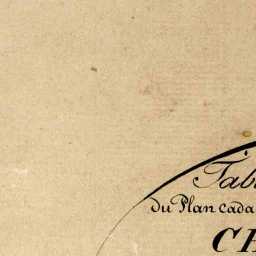 Tab
du Plan cada
CH